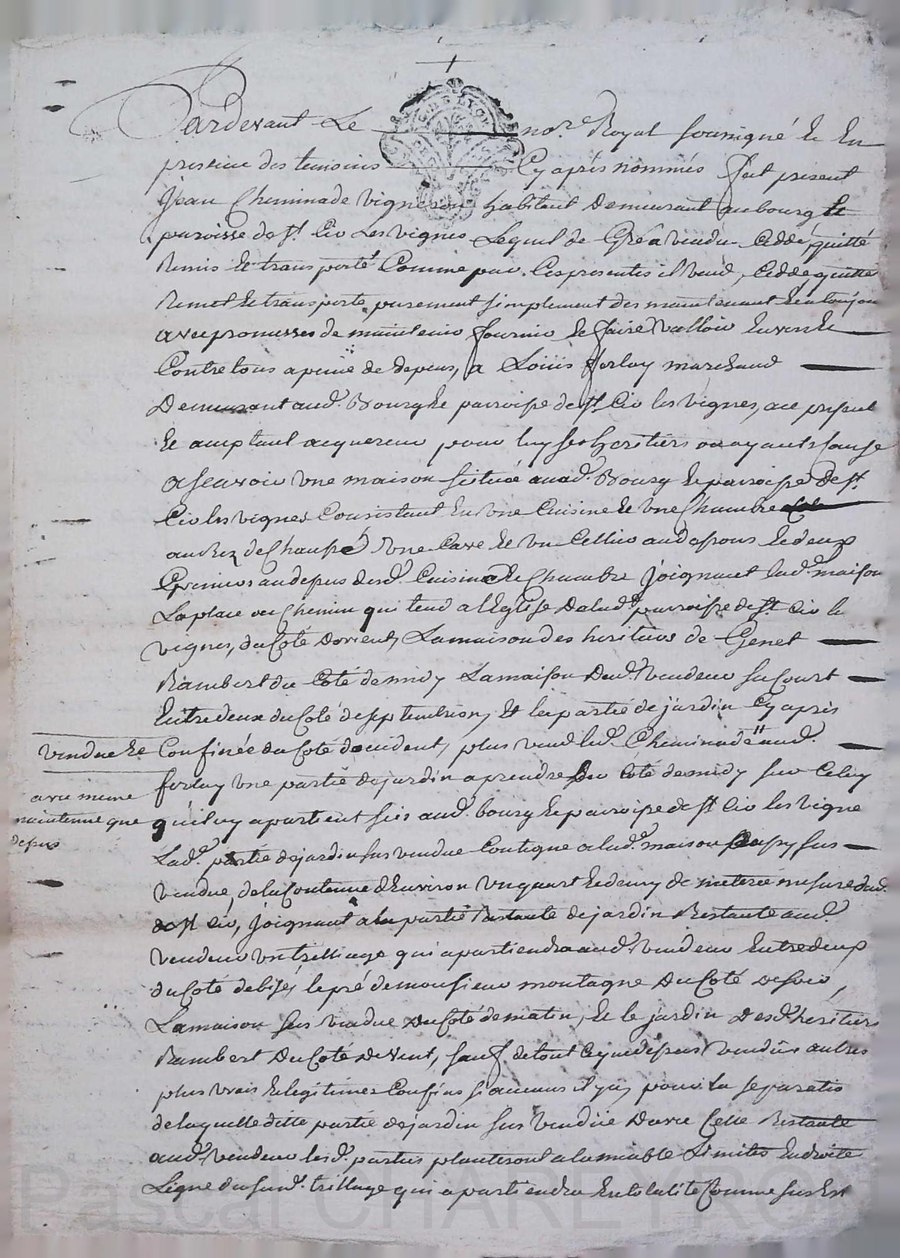 Pardevant Le no.re Royal soussigné Et En
presence des temoins Cy apres nommés fut present
Jean Cheminade vigneron habitant Demeurant au bourg Et
parroisse de St Cir Les vignes Lequel de Gré a vendu Ceddé quitté
Remis Et transporté Comme par Ces presentes il vend, Cedde quitte
Remet Et transporte purement simplement des maintenant Et a toujou
avec promesses de maintenir fournir Et faire valloir Envers Et
Contre tous a peine de depens, a Loüis forlay marchand
Demeurant aud. Bourg Et parroisse de St Cir les vignes, ace present
Et acceptant acquereur pour luy ses heritiers ou ayants cause
a scavoir une maison située aud. Bourg Et parroisse de St
Cir les vignes Consistant En une Cuisine Et une Chambre
au Rez de Chaussé, une Cave Et un Cellier au dessous Et deux
Greniers au dessus desd. Cuisine Et Chambre Joignant lad. maison
La place ou Chemin qui tend a l'Eglise dela d. parroisse de St Cir le
vignes, du Coté d'orient, La maison des heritiers de Genet
Rambert du Coté de midy La maison Dud. Vendeur La Court
Entre deux du Coté de septentrion, Et la partie de jardin Cy apres
vendue Et Confinée du Coté d'ocident, plus vend led. Cheminade aud.
forlay une partie de jardin a prendre du Coté de midy sur Celuy
avec meme
maintenue que
depuis
qui luy apartient sies aud. bourg Et parroisse de St Cir les vigne
Lad. partie de jardin sus vendue Contigue a lad. maison aussy sus
vendue, de la Contenue d'Environ un quart Et demy de meterée mesure dud.
St Cir, Joignant a la partie Restante de jardin Restante aud.
vendeur un treillage qui apartiendra aud. vendeur Entre deux
du Coté de bise, le pré de monsieur montagne Du Coté de soir,
La maison sus vendue Du Coté de matin, Et le jardin Desd. heritiers
Rambert Du Coté de vent, sauf de tout Ce que dessus vendu autres
plus vrais Et legitimes Confins si aucuns il y a, pour la separatio
de laquelle ditte partie de jardin sus vendüe D'avec Celle Restante
aud. vendeur lesd. parties planteront a lamiable Limites En droite
Ligne dud. trillage qui apartiendra En totalité Comme sus Est
Pascal CHAREYRON